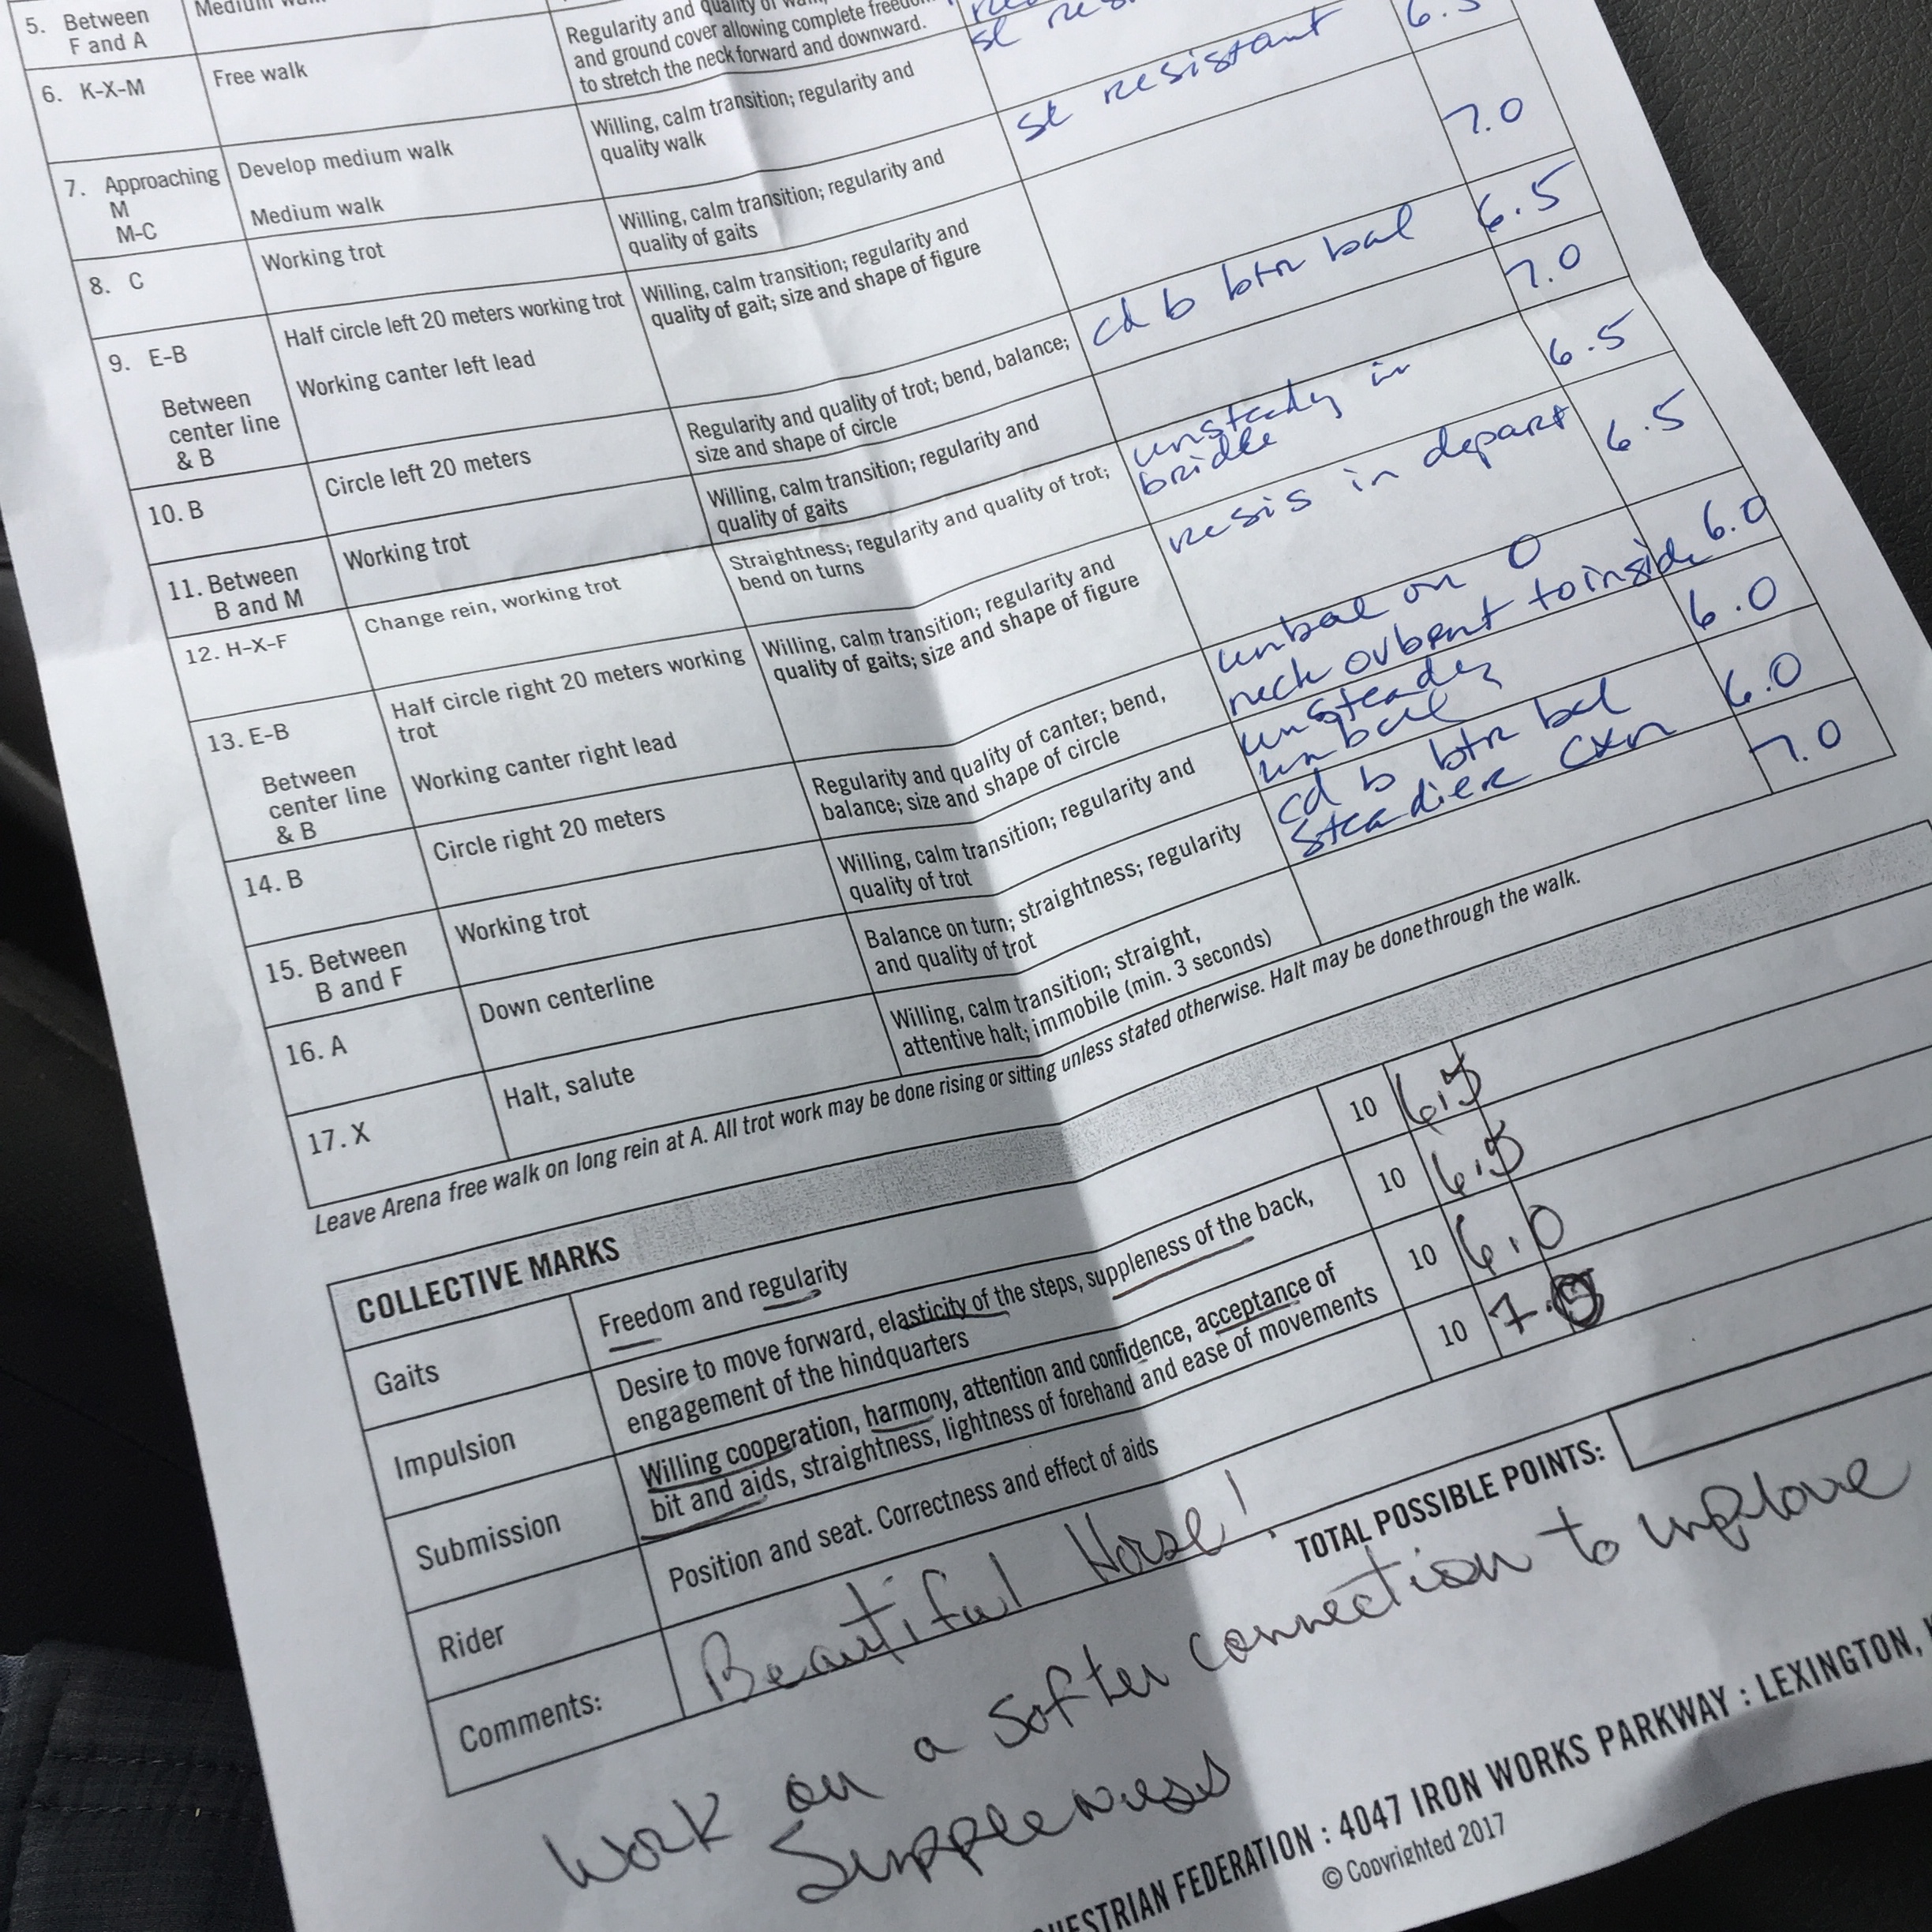 5. Between
F and A
Medium walk
Regularity and quality of
and ground cover allowing complete freedom
to stretch the neck forward and downward.
6. K-X-M
Free walk
Willing, calm transition; regularity and
quality walk
sl resistant
7. Approaching
M
M-C
Develop medium walk
Medium walk
Willing, calm transition; regularity and
quality of gaits
7.0
8. C
Working trot
Willing, calm transition; regularity and
quality of gait; size and shape of figure
cd b btr bal 6.5
9. E-B
Between
center line
& B
Half circle left 20 meters working trot
Working canter left lead
Regularity and quality of trot; bend, balance;
size and shape of circle
7.0
10. B
Circle left 20 meters
Willing, calm transition; regularity and
quality of gaits
unsteady in
bridle
6.5
11. Between
B and M
Working trot
Straightness; regularity and quality of trot;
bend on turns
resis in depart 6.5
12. H-X-F
Change rein, working trot
Willing, calm transition; regularity and
quality of gaits; size and shape of figure
unbal on O
neck ovbent to inside 6.0
13. E-B
Between
center line
& B
Half circle right 20 meters working
trot
Working canter right lead
Regularity and quality of canter; bend,
balance; size and shape of circle
unsteady
unbal
6.0
14. B
Circle right 20 meters
Willing, calm transition; regularity and
quality of trot
cd b btr bal
steadier cxn
6.0
15. Between
B and F
Working trot
Balance on turn; straightness; regularity
and quality of trot
7.0
16. A
Down centerline
Willing, calm transition; straight,
attentive halt; immobile (min. 3 seconds)
17. X
Halt, salute
Leave Arena free walk on long rein at A. All trot work may be done rising or sitting unless stated otherwise. Halt may be donethrough the walk.
COLLECTIVE MARKS
Gaits
Freedom and regularity
10 6.5
Impulsion
Desire to move forward, elasticity of the steps, suppleness of the back,
engagement of the hindquarters
10 6.5
Submission
Willing cooperation, harmony, attention and confidence, acceptance of
bit and aids, straightness, lightness of forehand and ease of movements
10 6.0
Rider
Position and seat. Correctness and effect of aids
10 7.0
Comments:
Beautiful Horse!
TOTAL POSSIBLE POINTS:
Work on a softer connection to improve
Suppleness
FEDERATION : 4047 IRON WORKS PARKWAY : LEXINGTON,
© Copyrighted 2017